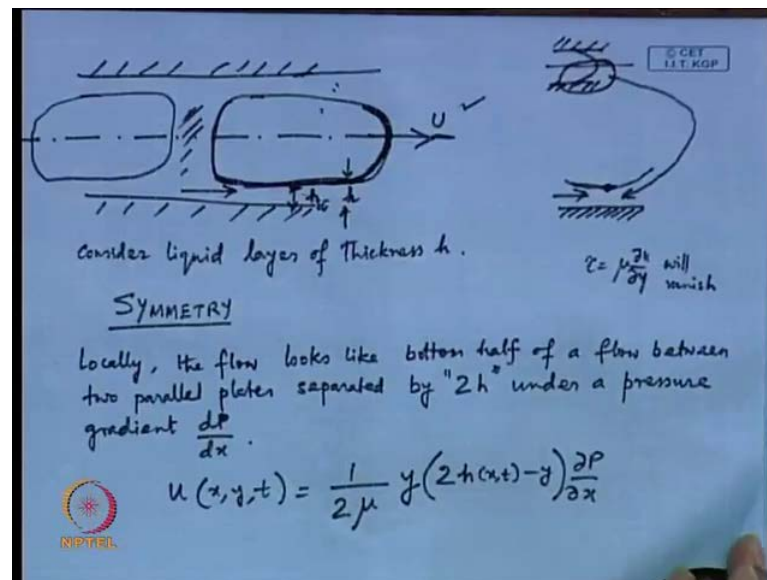 © CET
I.I.T. KGP
U ✓
h
h
Consider liquid layer of Thickness h.
τ = μ ∂u/∂y will
vanish
SYMMETRY
Locally, the flow looks like bottom half of a flow between
two parallel plates separated by "2h" under a pressure
gradient dP/dx.
u(x,y,t) = 1/2μ y(2h(x,t)-y) ∂P/∂x
NPTEL